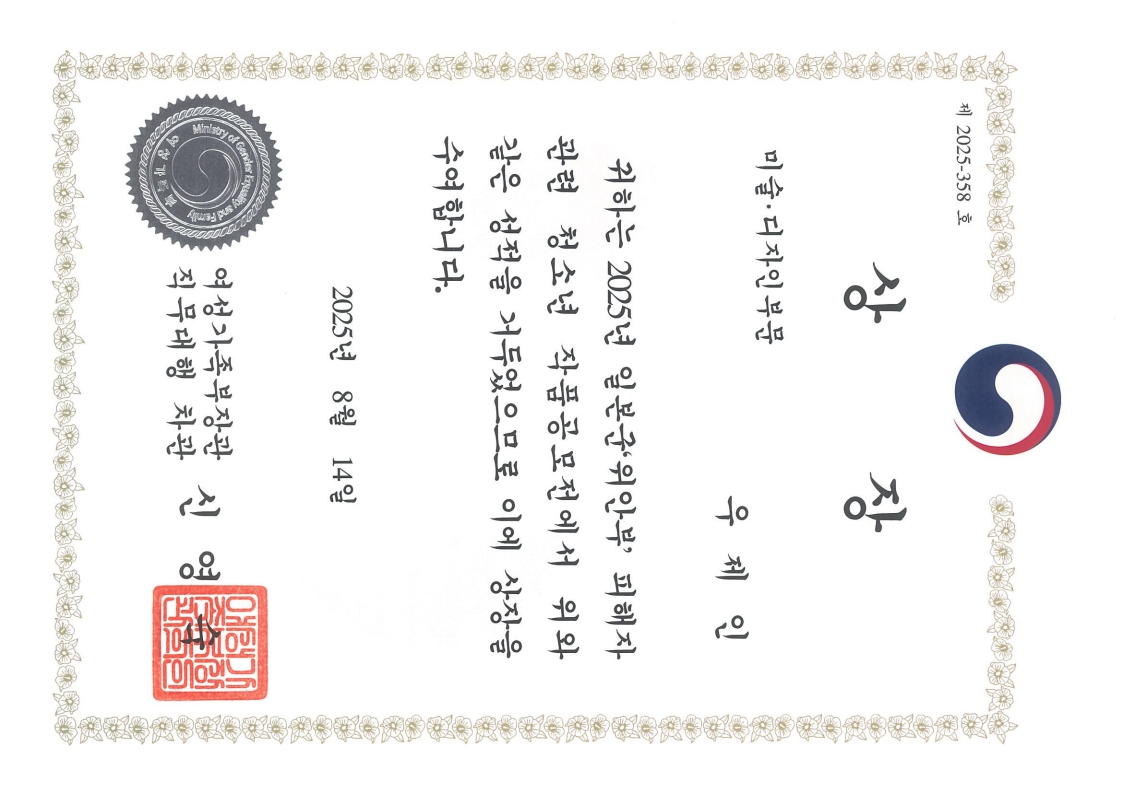 제 2025-358 호
상 장
미술·디자인부문
우 제 인
귀하는 2025년 일본군‘위안부’ 피해자
관련 청소년 작품공모전에서 위와
같은 성적을 거두었으므로 이에 상장을
수여합니다.
2025년 8월 14일
여성가족부장관
직무대행 차관 신 영 숙
Ministry of Gender Equality and Family
여성가족부